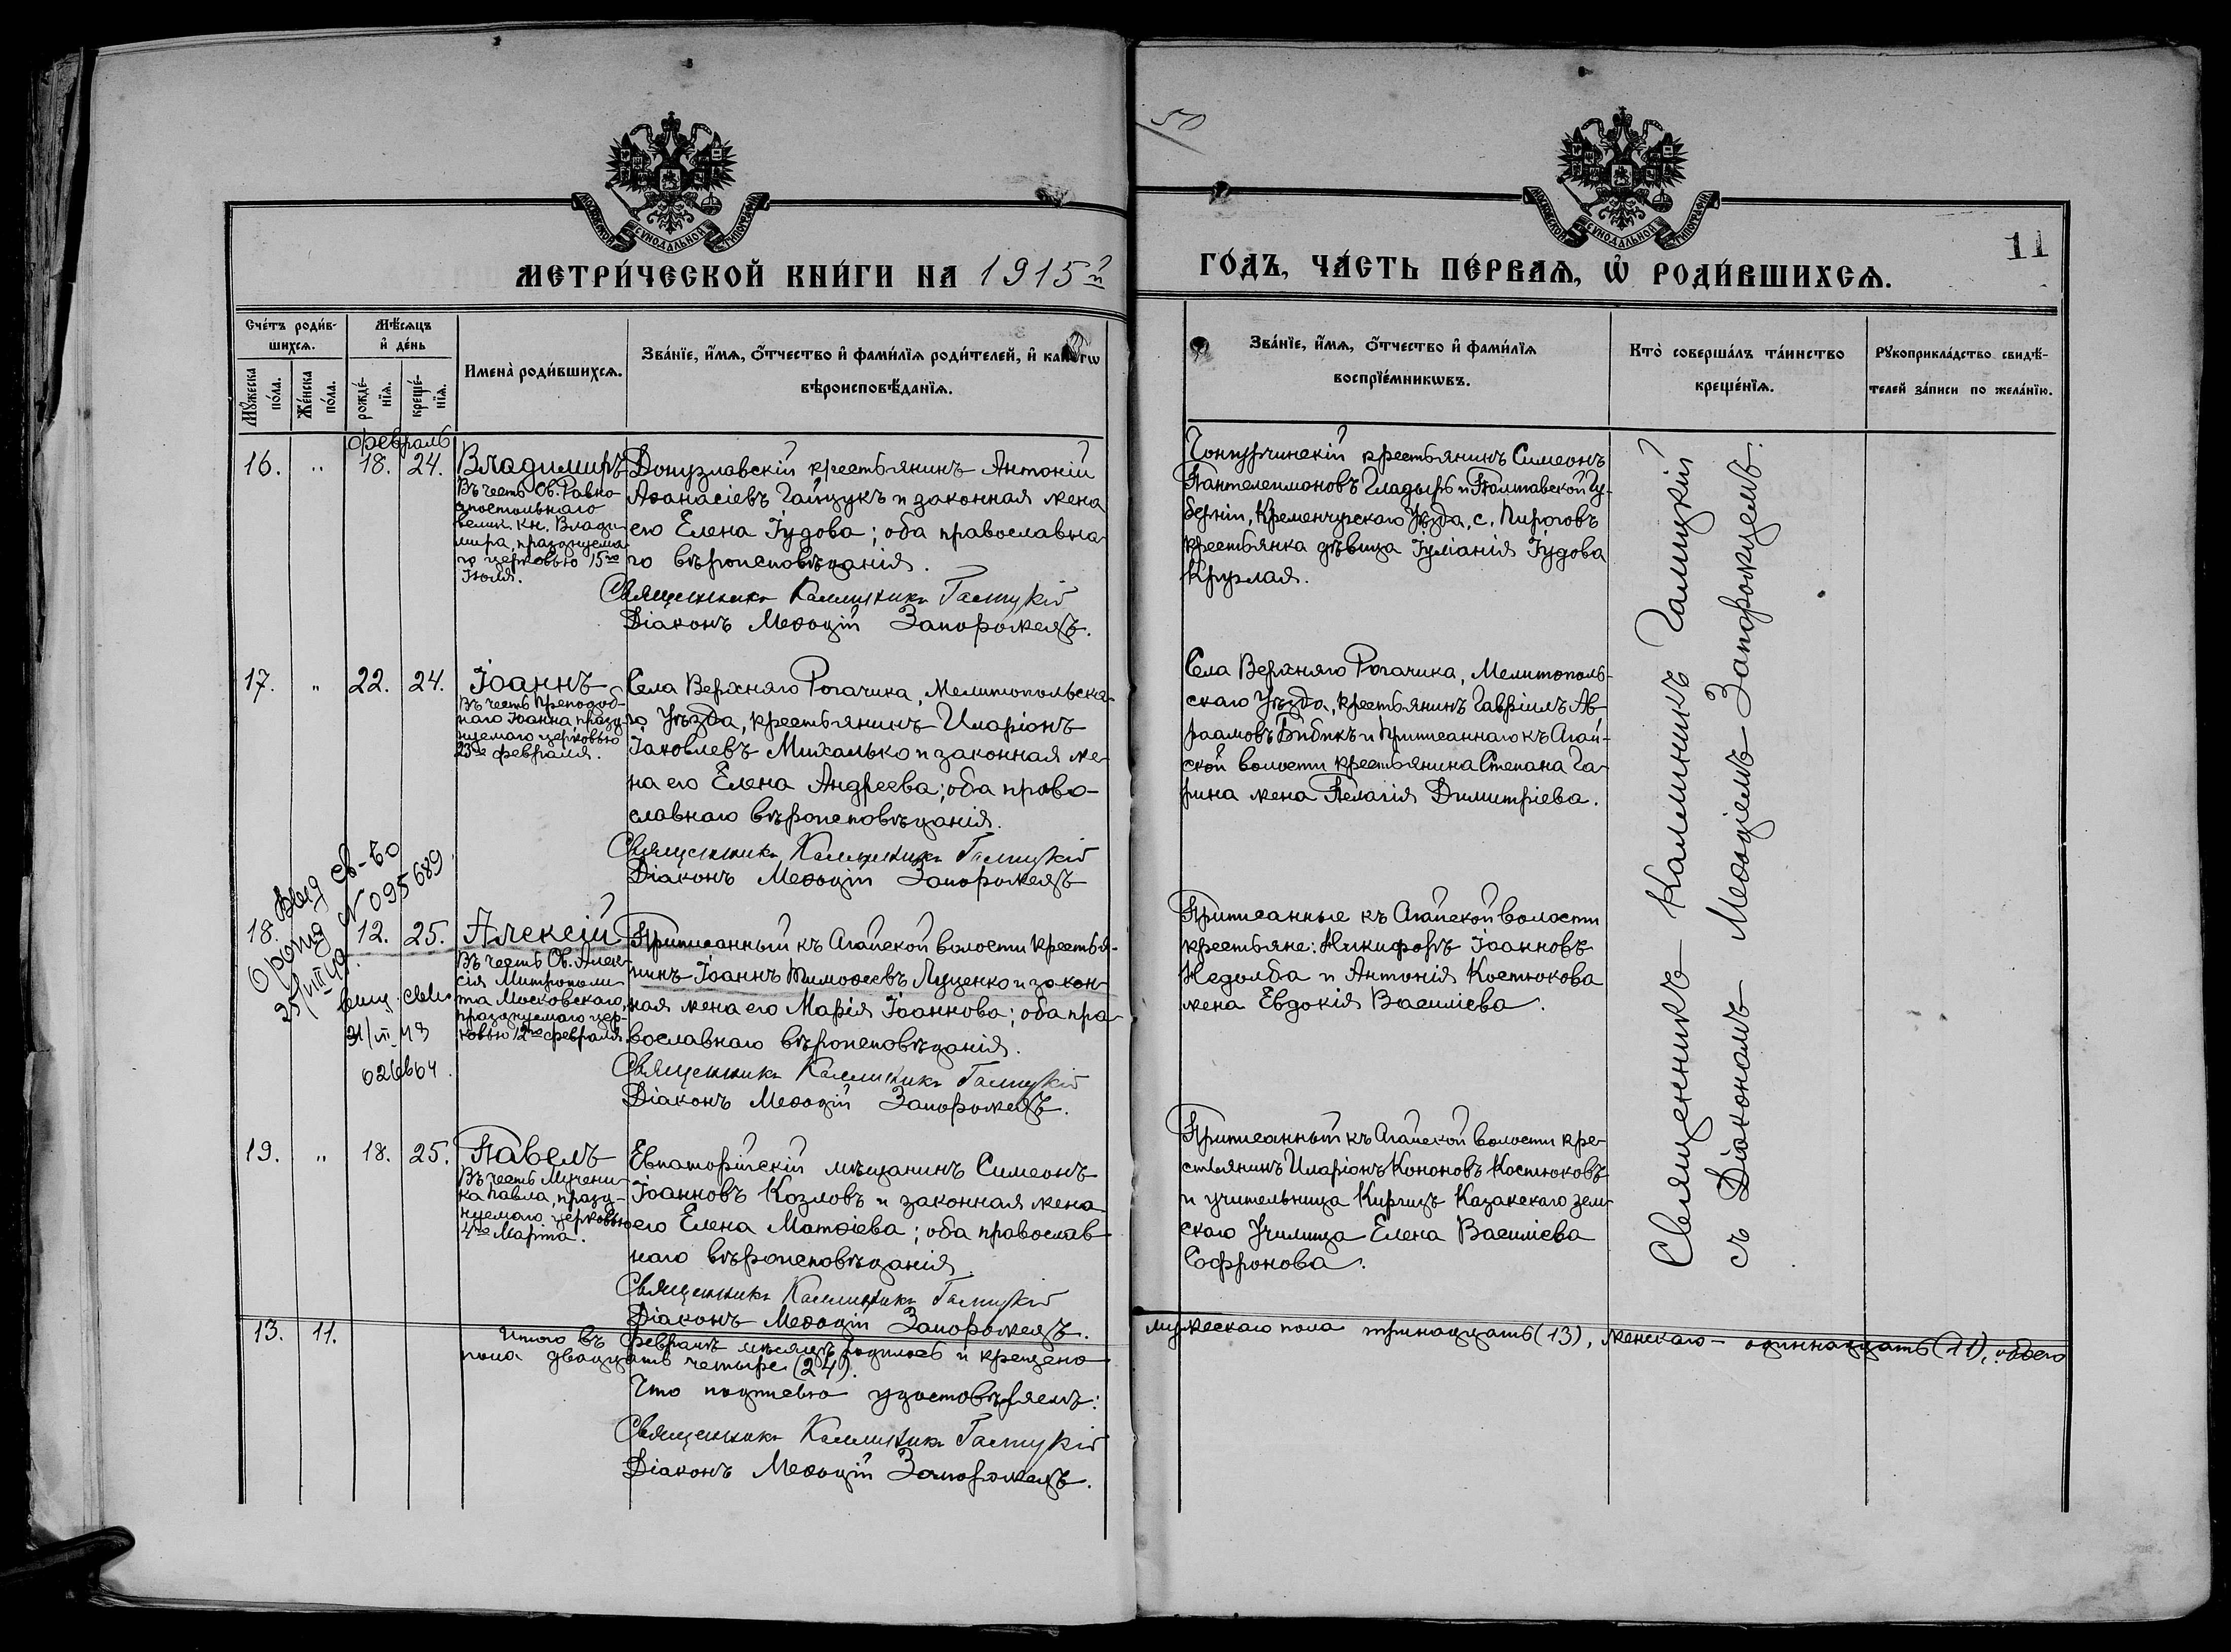 50
11
МОСКОВСКОЙ СѴНОДАЛЬНОЙ ТИПОГРАФІИ
МОСКОВСКОЙ СѴНОДАЛЬНОЙ ТИПОГРАФІИ
МЕТРИ́ЧЕСКОЙ КНИ́ГИ НА 1915й
ГО́ДЪ, ЧА́СТЬ ПЕ́РВАѦ, Ѡ҆ РОДИ́ВШИХСѦ.
Сче́тъ роди́в-
шихсѧ.
Мꙋ́жеска
по́ла.
Же́нска
по́ла.
Мѣ́сѧцъ
и҆ де́нь
рожде́-
нїѧ.
креще́-
нїѧ.
Имена̀ роди́вшихсѧ.
Зва́нїе, и҆́мѧ, ѻ҆́тчество и҆ фами́лїѧ роди́телей, и҆ како́гѡ
вѣроисповѣ́данїѧ.
Зва́нїе, и҆́мѧ, ѻ҆́тчество и҆ фами́лїѧ
воспрїе́мникѡвъ.
Кто̀ соверша́лъ та́инство
креще́нїѧ.
Рꙋкоприкла́дство свидѣ́-
телей за́писи по жела́нїю.
Февраль
16. " 18. 24. Владимиръ
Въ честь Св. Равно-
апостольнаго
велик. кн. Влади-
мира, празднуема-
го церковью 15го
Іюля.
Донузлавскій крестьянинъ Антоній
Аѳанасіевъ Гайдукъ и законная жена
его Елена Іудова; оба православна-
го вѣроисповѣданія.
Священникъ Каллиникъ Галицкій
Діаконъ Меѳодій Запорожецъ.
крестьянинъ Симеонъ
Пантелеимоновъ Гладырь и Полтавской Гу-
берніи, Кременчугскаго Уѣзда, с. Пироговъ
крестьянка дѣвица Іуліанія Іудова
Круглая.
17. " 22. 24. Іоаннъ
Въ честь Преподоб-
наго Іоанна празд-
нуемаго церковью
23го февраля.
Села Верхняго Рогачика, Мелитопольска-
го Уѣзда, крестьянинъ Иларіонъ
Іаковлевъ Михалько и законная же-
на его Елена Андреева; оба право-
славнаго вѣроисповѣданія.
Священникъ Каллиникъ Галицкій
Діаконъ Меѳодій Запорожецъ
Села Верхняго Рогачика, Мелитополь-
скаго Уѣзда, крестьянинъ Гавріилъ Ав-
раамовъ Бибикъ и Приписаннаго къ Агай-
ской волости крестьянина Степана Га-
рина жена Пелагія Димитріева.
Выд св-во
N 095689
25/VIII 49
18. 12. 25. Алексій
Въ честь Св. Алек-
сія Митрополи-
та Московскаго,
празднуемаго цер-
ковью 12го февраля.
31/III-43
Приписанный къ Агайской волости крестья-
нинъ Іоаннъ Тимоѳеевъ Луценко и закон-
ная жена его Марія Іоаннова; оба пра-
вославнаго вѣроисповѣданія.
Священникъ Каллиникъ Галицкій
Діаконъ Меѳодій Запорожецъ.
Приписанные къ Агайской волости
крестьяне: Никифоръ Іоанновъ
Недолба и Антонія Костюкова
жена Евдокія Василіева.
19. " 18. 25. Павелъ
Въ честь Мучени-
ка Павла, празд-
нуемаго церковью
4го Марта.
Евпаторійскій мѣщанинъ Симеонъ
Іоанновъ Козловъ и законная жена
его Елена Матѳіева; оба православ-
наго вѣроисповѣданія
Священникъ Каллиникъ Галицкій
Діаконъ Меѳодій Запорожецъ.
Приписанный къ Агайской волости кре-
стьянинъ Иларіонъ Кононовъ Костюковъ
и учительница Киргизъ Казакскаго зем-
скаго Училища Елена Василіева
Софронова.
Священникъ Каллиникъ Галицкій
съ Діакономъ Меѳодіемъ Запорожцемъ.
13. 11. Итого въ Февралѣ мѣсяцѣ родилось и крещено мужескаго пола тринадцать (13), женскаго – одиннадцать (11), обоего
пола двадцать четыре (24).
Что подписью удостовѣряемъ:
Священникъ Каллиникъ Галицкій
Діаконъ Меѳодій Запорожецъ.